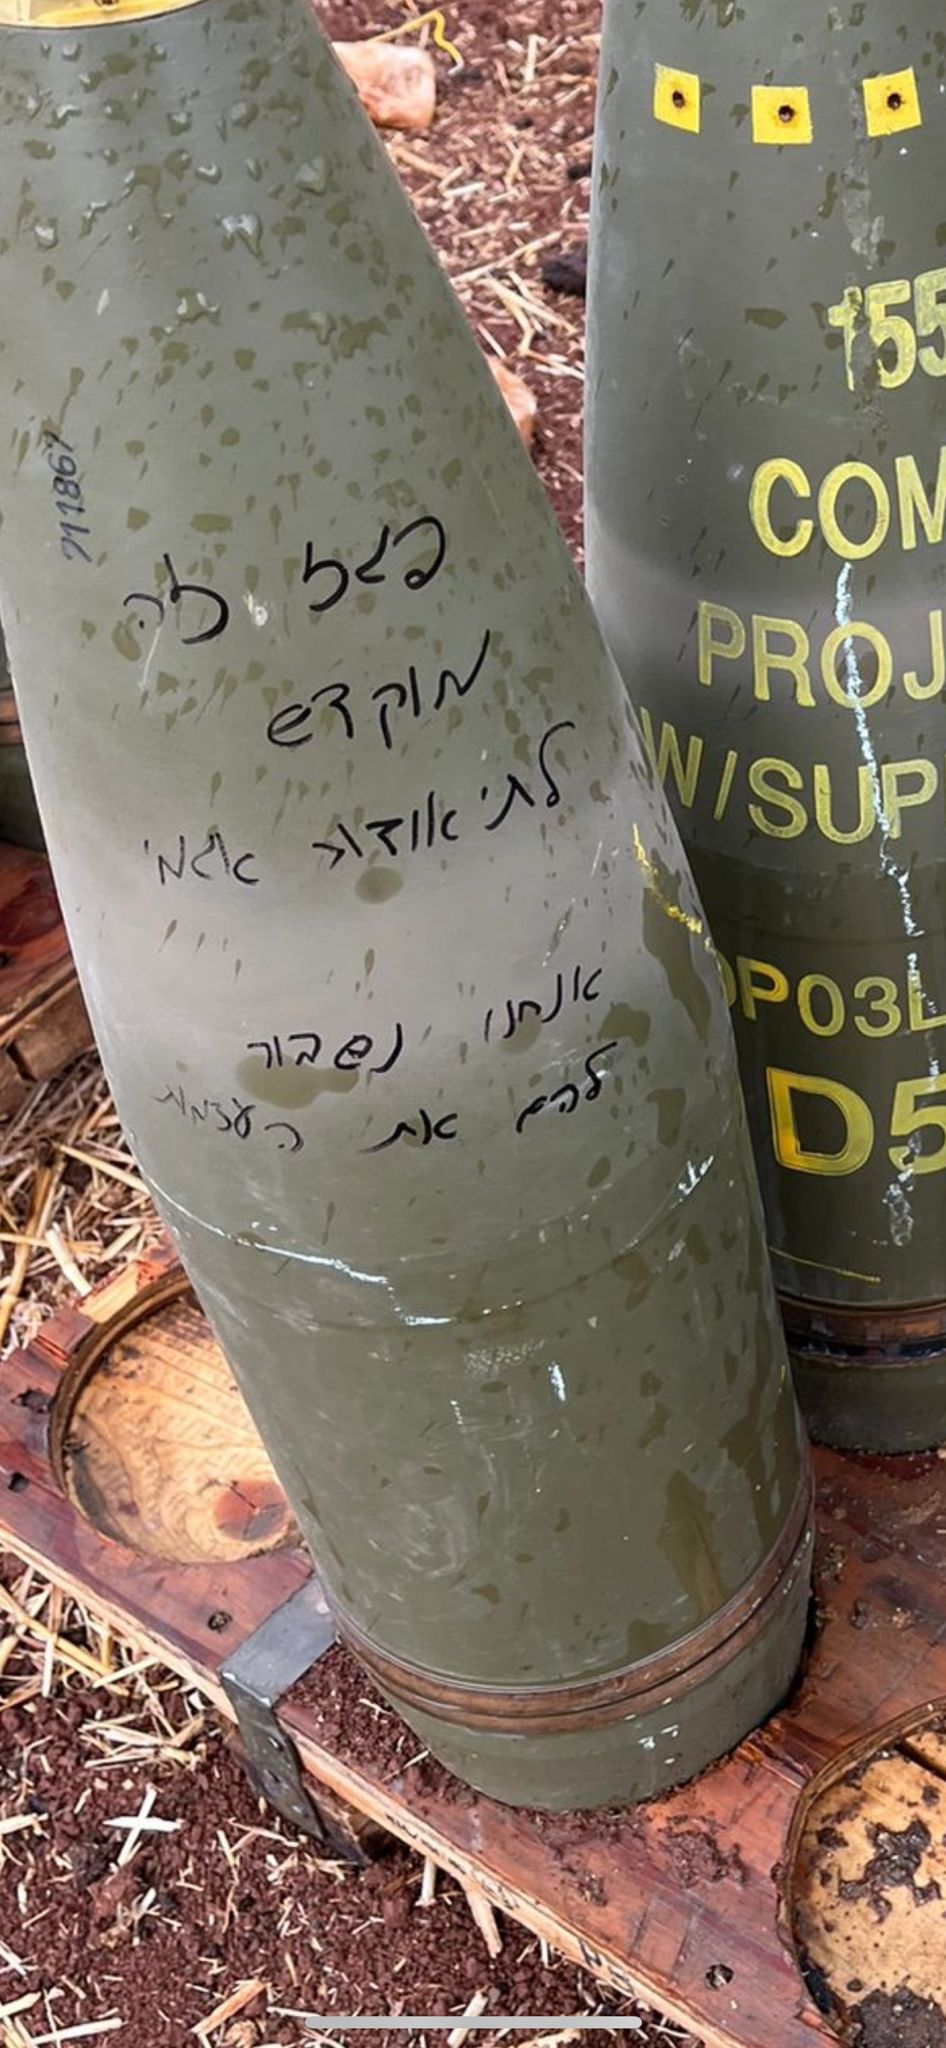 211867
פגז זה
מוקדש
לתיאודור אגמי
אנחנו נשבור
להם את העצמות
155
COM
PROJ
W/SUP
DP03L
D5